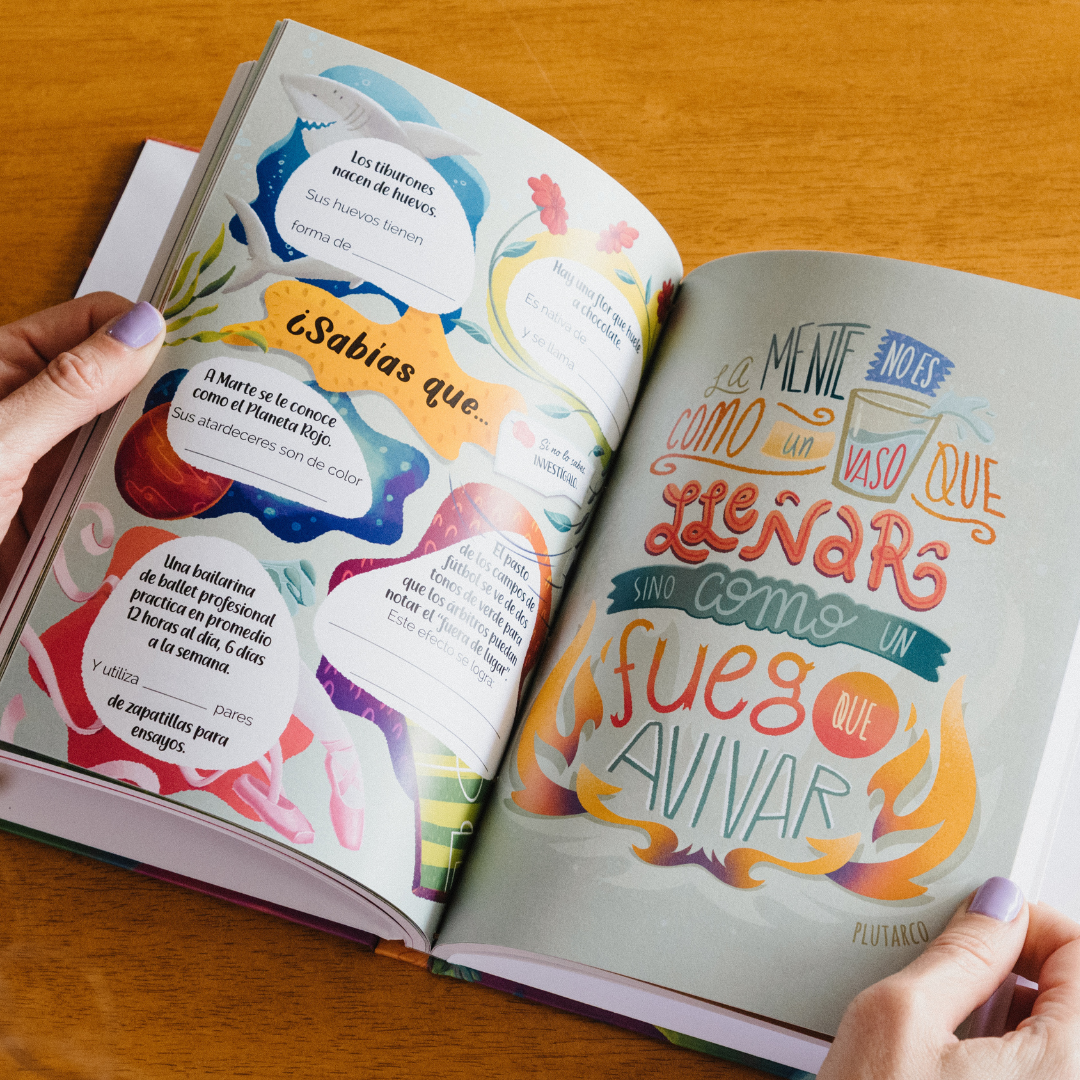 Los tiburones
nacen de huevos.
Sus huevos tienen
forma de
Hay una flor que huele
a chocolate.
Es nativa de
y se llama
¿Sabías que...
Si no lo sabes,
INVESTÍGALO.
A Marte se le conoce
como el Planeta Rojo.
Sus atardeceres son de color
El pasto
de los campos de
fútbol se ve de dos
tonos de verde para
que los árbitros puedan
notar el "fuera de lugar".
Este efecto se logra:
Una bailarina
de ballet profesional
practica en promedio
12 horas al día, 6 días
a la semana.
Y utiliza ________ pares
de zapatillas para
ensayos.
LA MENTE NO ES
COMO un VASO QUE
LLeÑAR
SINO como UN
fuego QUE
AVIVAR
PLUTARCO